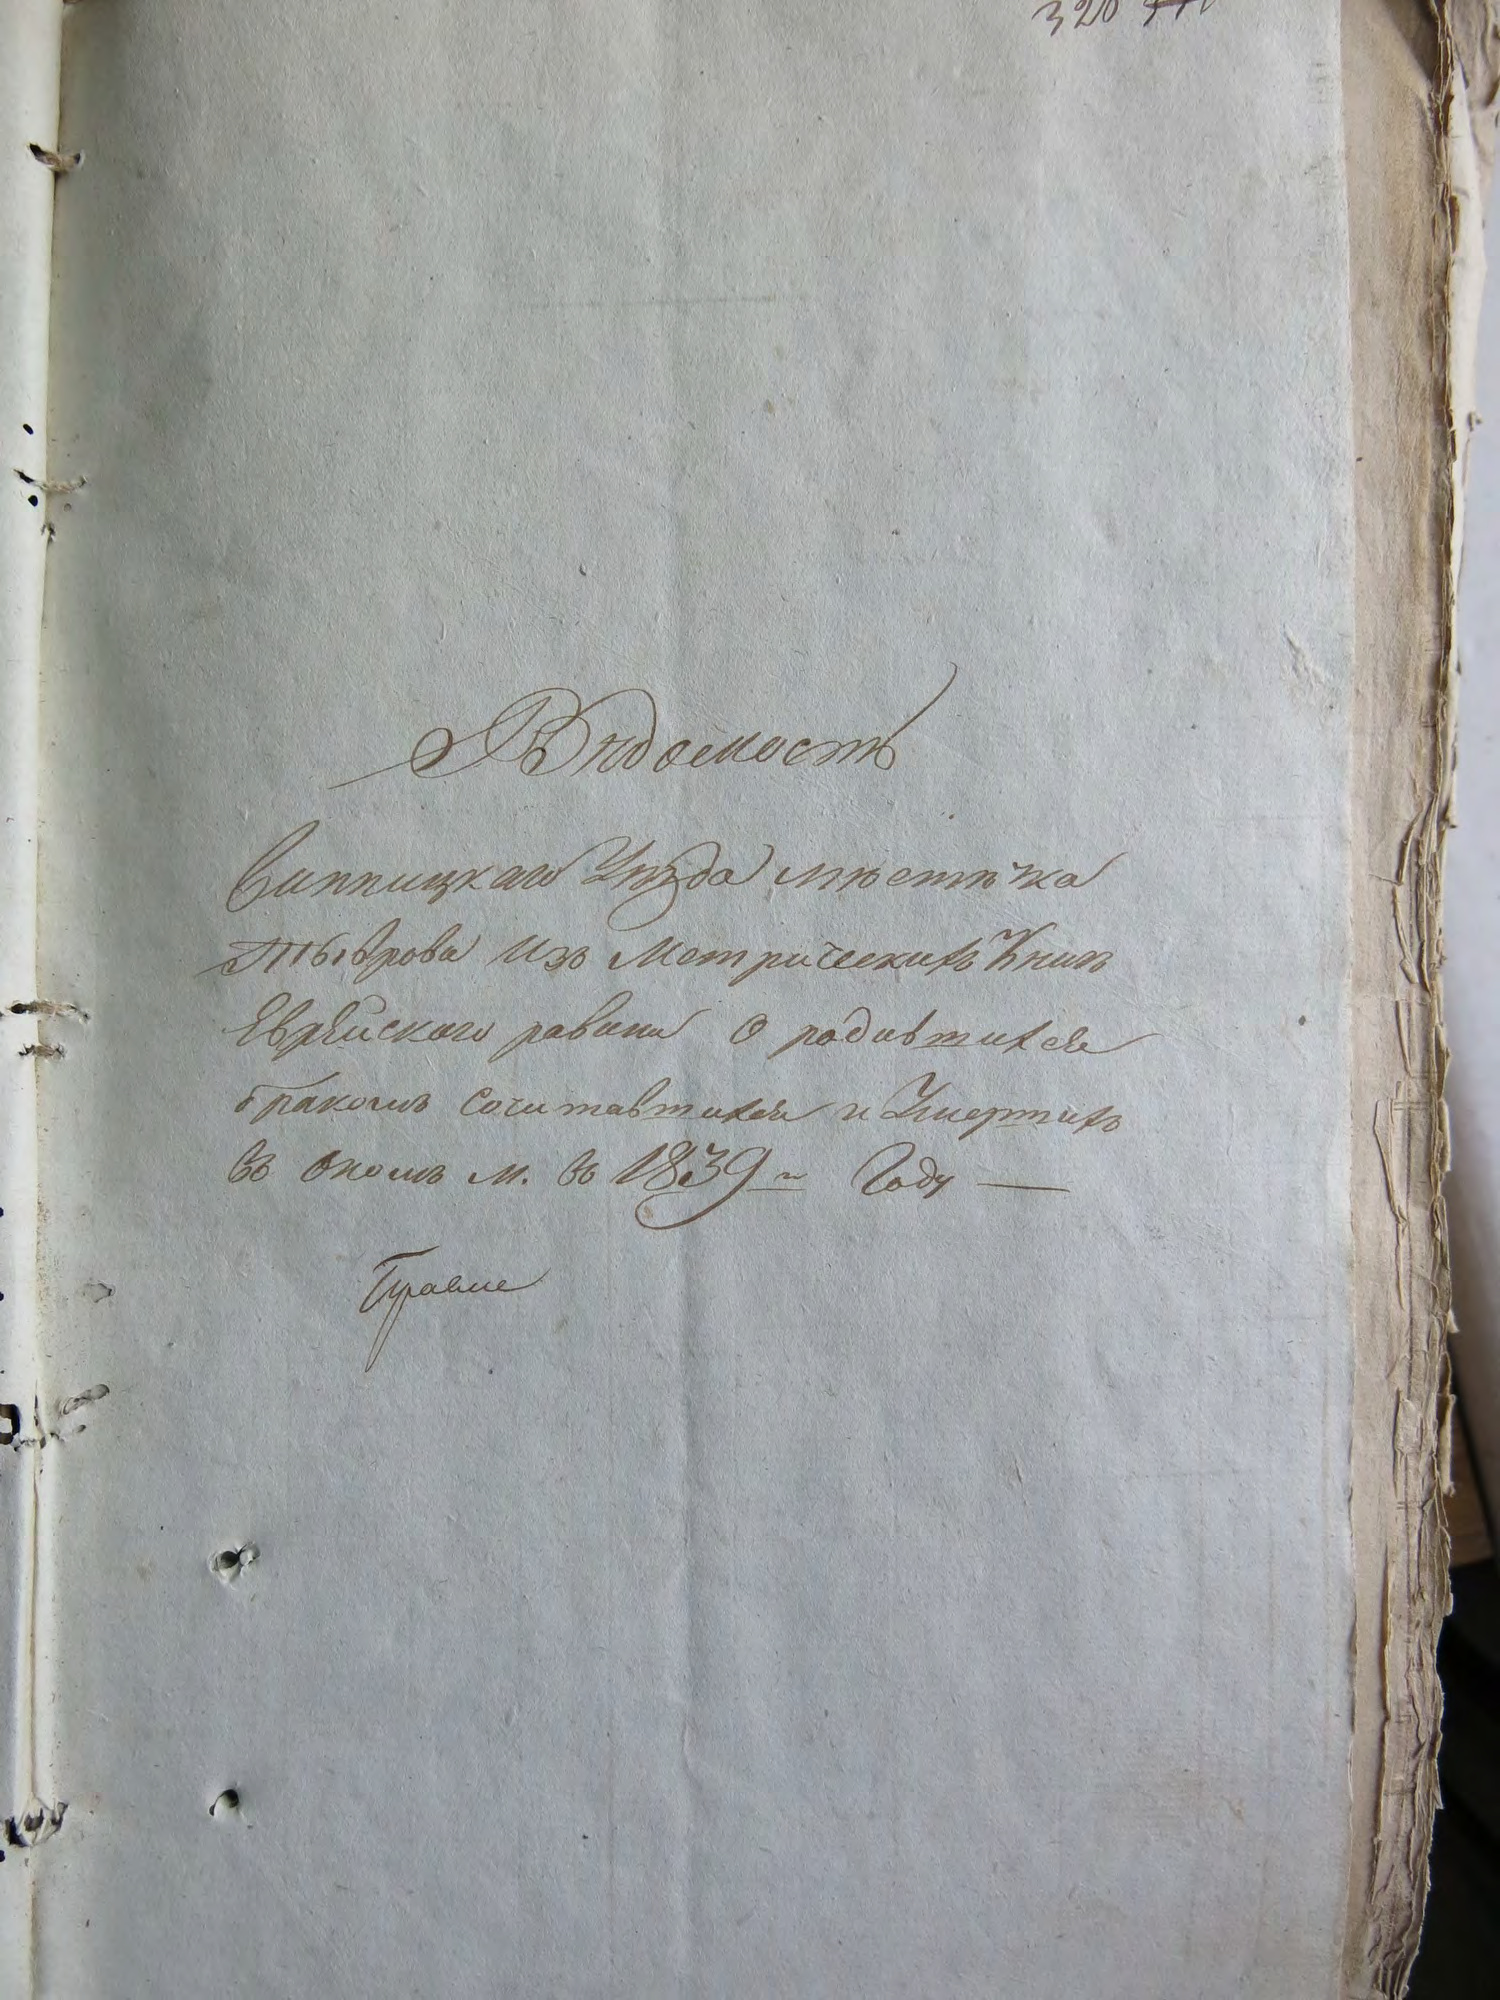 320
Вѣдомость
Винницкаго Уѣзда мѣстѣчка
Тыврова Изъ Метрическихъ Книгъ
Еврейского равина О родившихся
бракомъ сочитавшихся и Умершихъ
въ ономъ м. въ 1839 м Году —